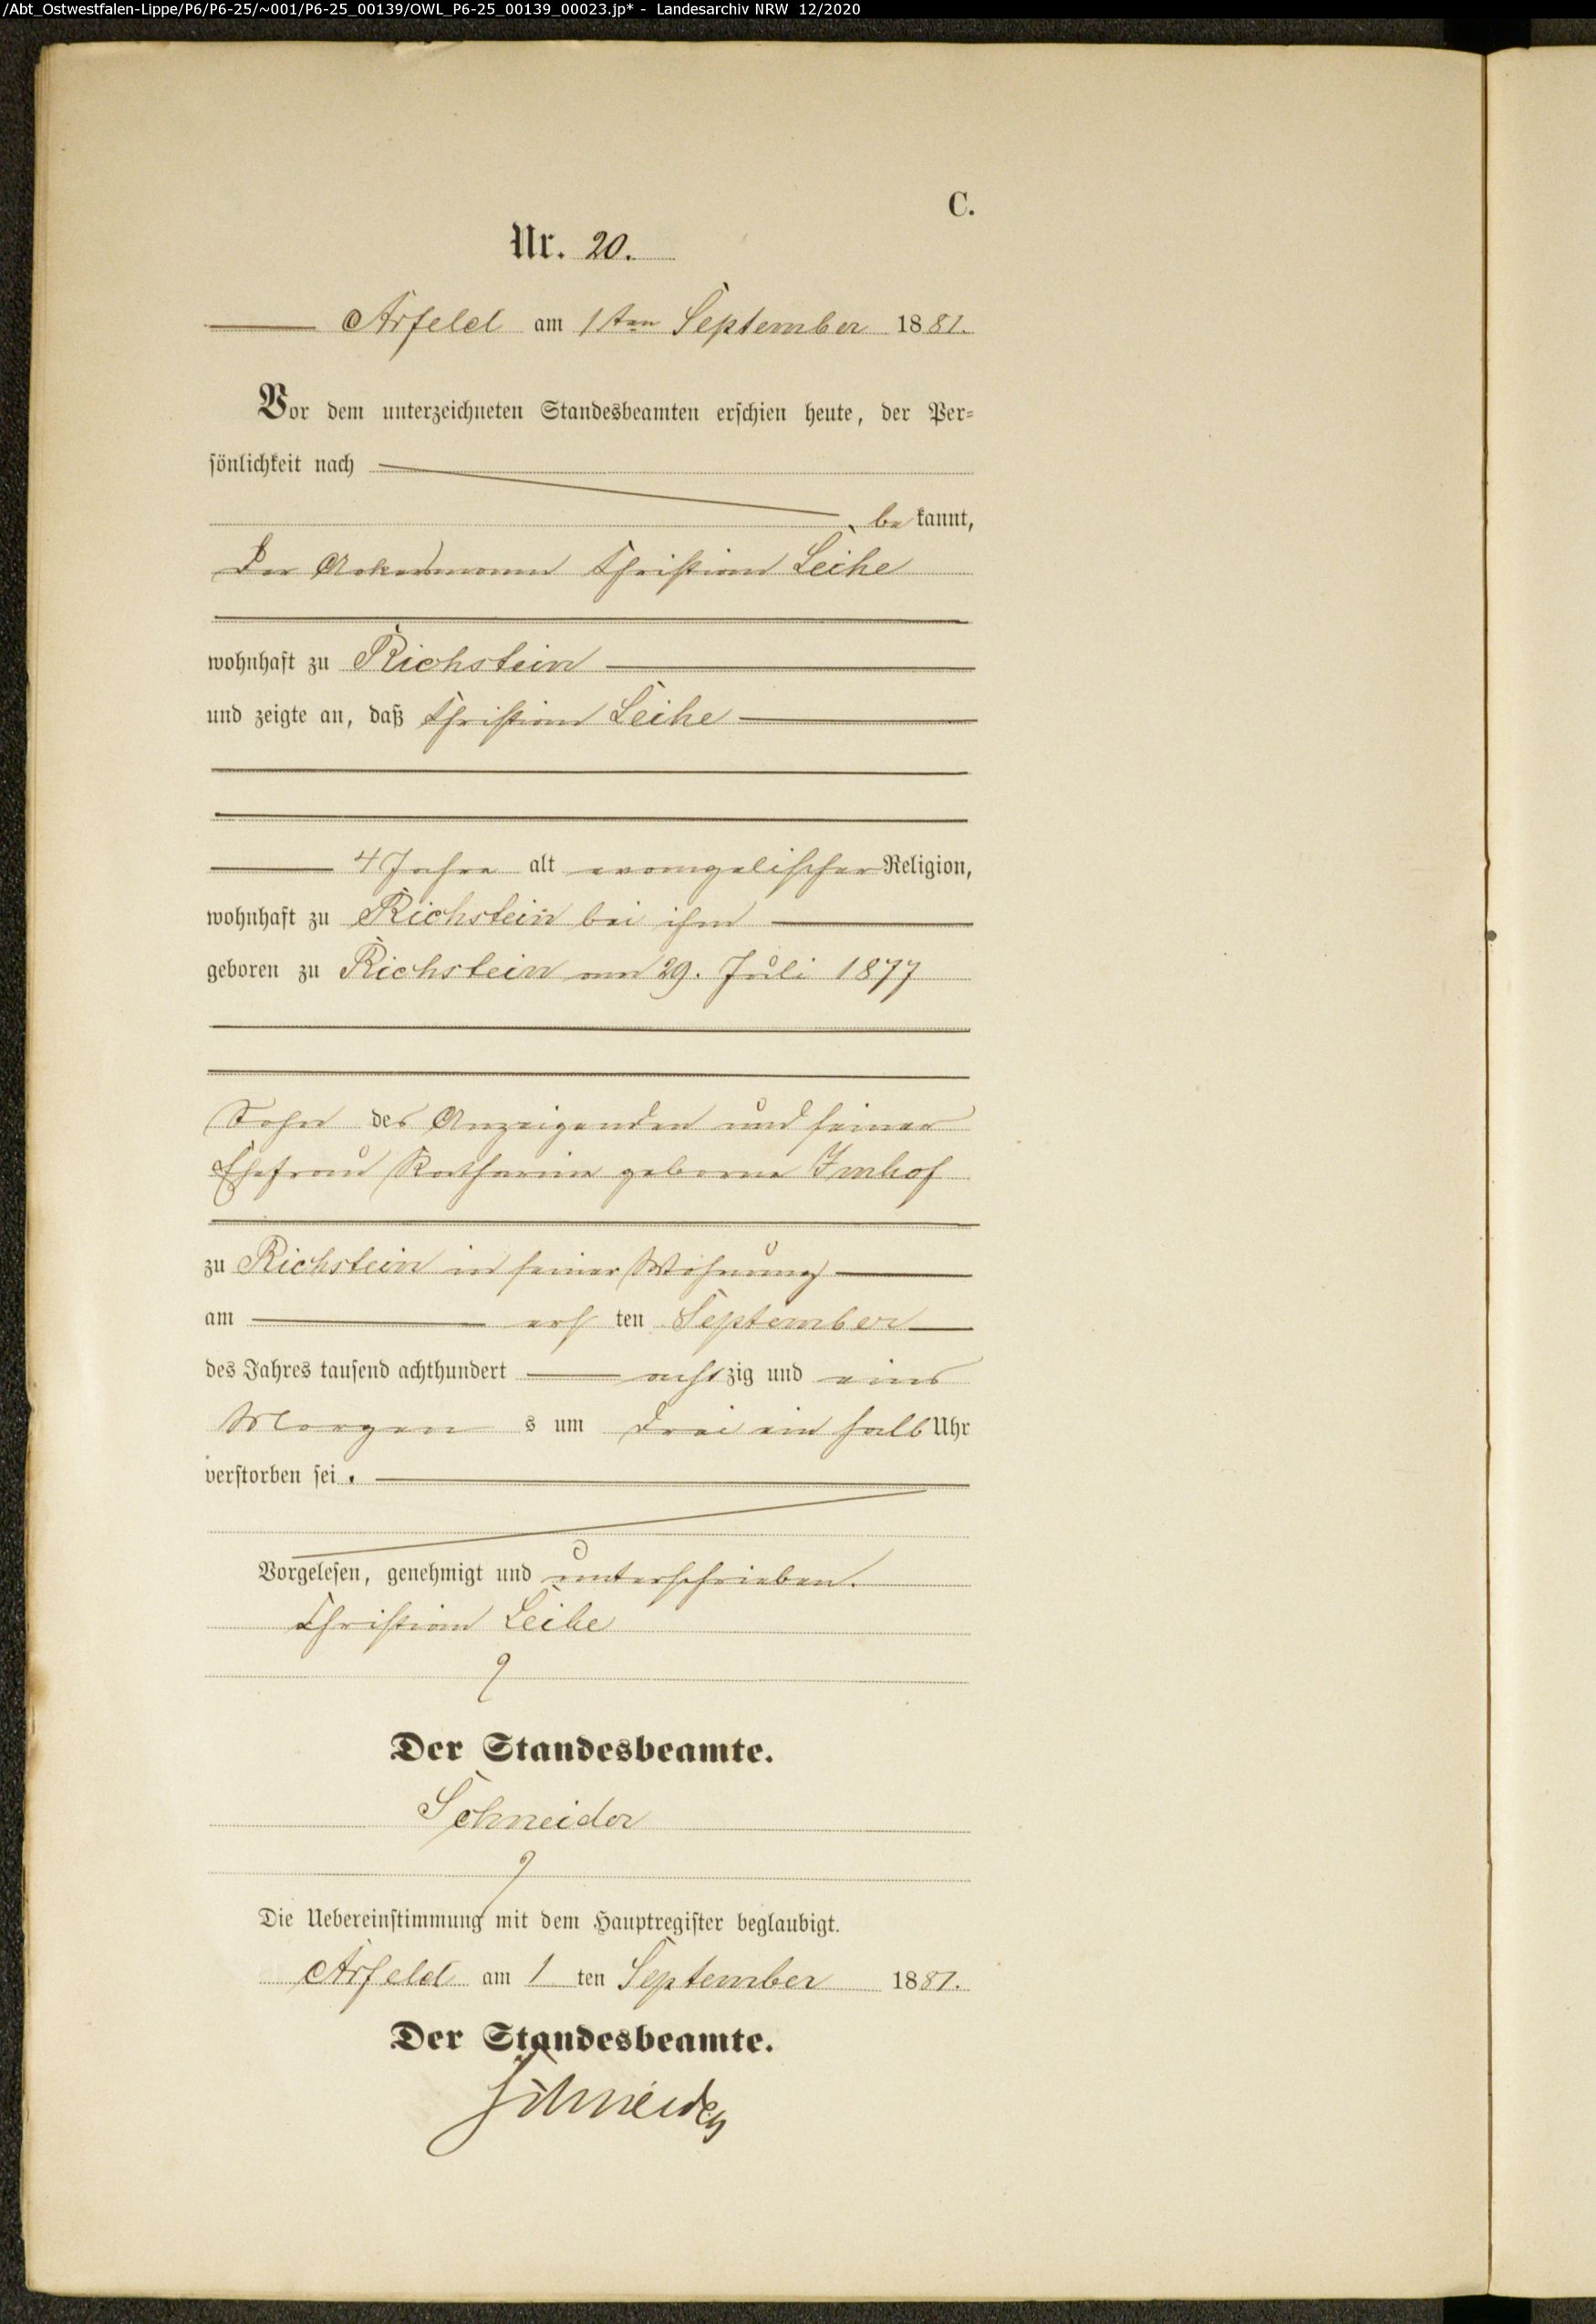 /Abt_Ostwestfalen-Lippe/P6/P6-25/~001/P6-25_00139/OWL_P6-25_00139_00023.jp* - Landesarchiv NRW 12/2020
C.
Nr. 20.
Arfeld am 1ten September 1881.
Vor dem unterzeichneten Standesbeamten erschien heute, der Per-
sönlichkeit nach
bekannt,
Der Ackersmann Christian Leihe
wohnhaft zu Richstein
und zeigte an, daß Christian Leihe
4 Jahre alt evangelischer Religion,
wohnhaft zu Richstein bei ihm
geboren zu Richstein am 29. Juli 1877
Sohn des Anzeigenden und seiner
Ehefrau Katharine geborne Imhof
zu Richstein in seiner Wohnung
am ersten September
des Jahres tausend achthundert achtzig und eins
Morgens um drei ein halb Uhr
verstorben sei.
Vorgelesen, genehmigt und unterschrieben.
Christian Leihe
Der Standesbeamte.
Schneider
Die Uebereinstimmung mit dem Hauptregister beglaubigt.
Arfeld am 1ten September 1881.
Der Standesbeamte.
Schneider